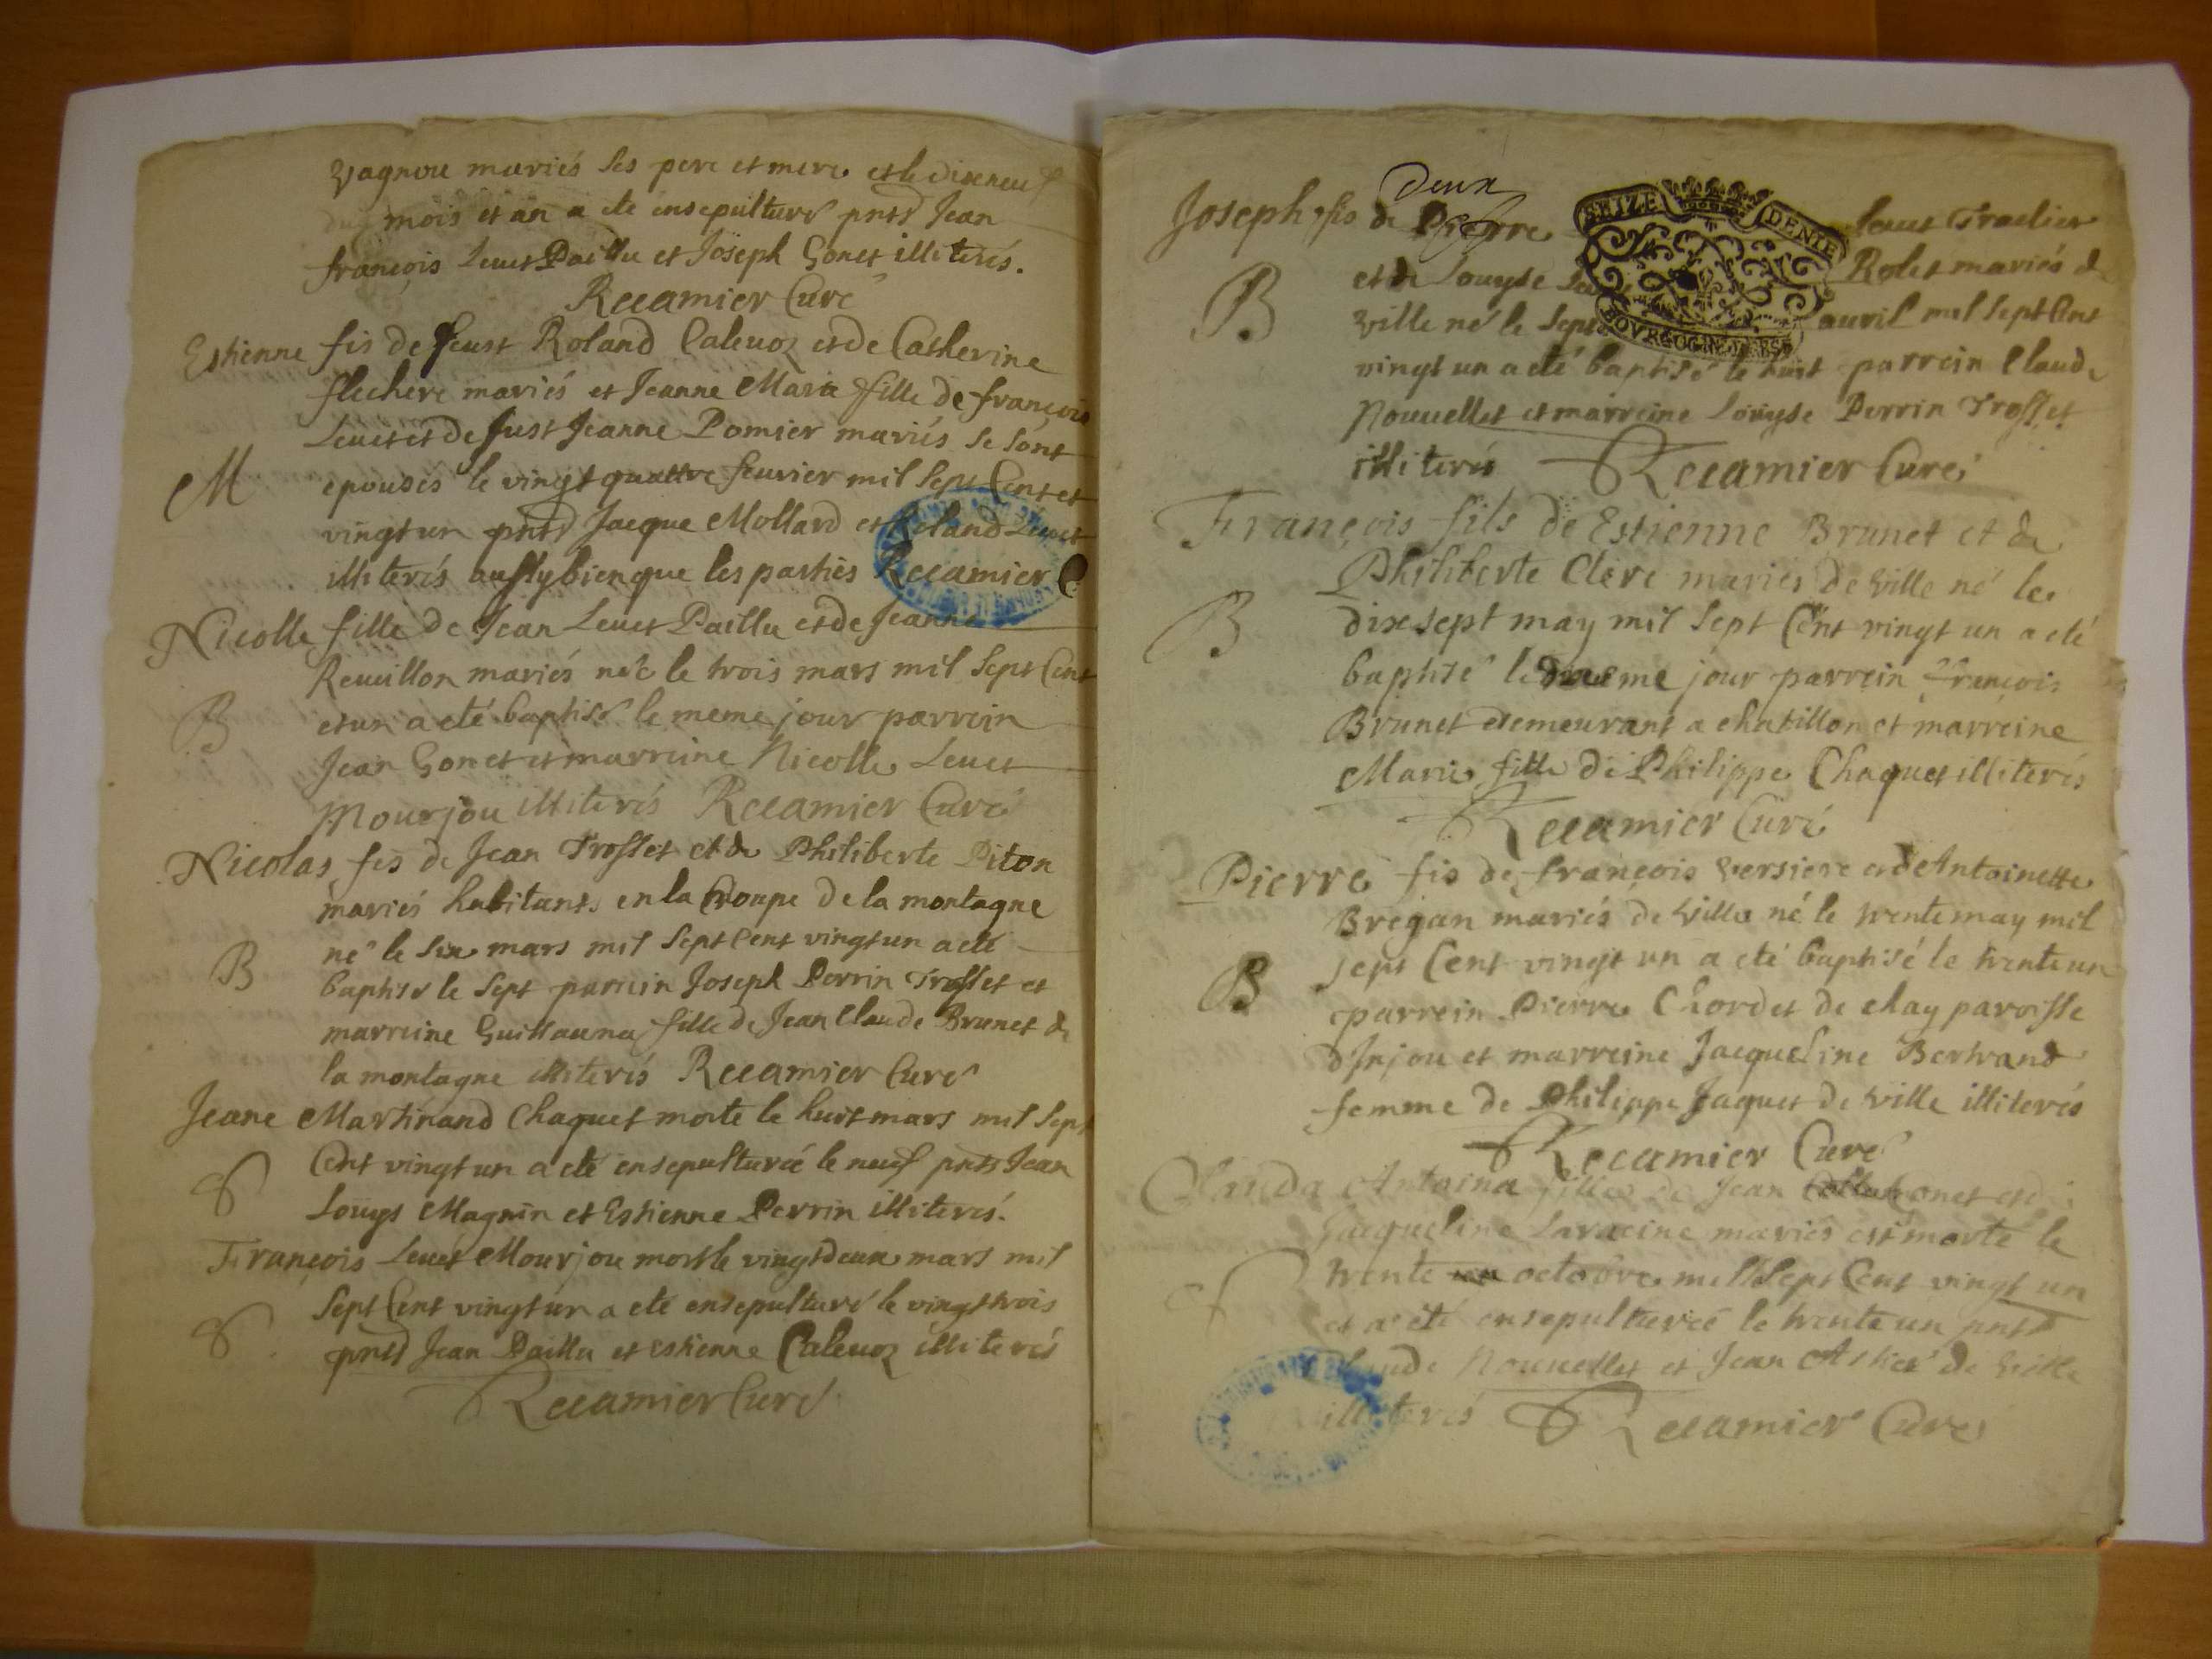 vagnou mariés ses pere et mere et le dixneuf
mois et an a eté ensepulturé pnts Jean
françois Leuet Paillu et Joseph Gonet illiterés.
Recamier Curé
Estienne fis de feust Roland Caleuoz et de Catherine
flechere mariés et Jeanne Maria fille de françois
Leuet et de fust Jeanne Pomier mariés se sont
M epousés le vingt quattre feurier mil sept Cent et
vingt un pnts Jacque Mollard et Roland Leuet
illiterés aussy bien que les parties Recamier C
Nicolle fille de Jean Leuet Paillu et de Jeanne
Reuillon mariés neé le trois mars mil sept Cent
B et un a eté baptisé le meme jour parrein
Jean Gonet et marreine Nicolle Leuet
Mourjou illiterés Recamier Curé
Nicolas fis de Jean Trosset et de Philiberte Piton
mariés habitants en la Croupe de la montagne
né le six mars mil sept Cent vingt un a eté
B baptisé le sept parrein Joseph Perrin Trosset et
marreine Guillauma fille de Jean Claude Brunet de
la montagne illiterés Recamier Curé
Jeane Martinand Chaquet morte le huit mars mil sept
Cent vingt un a eté ensepulturée le neuf pnts Jean
S Louys Magnin et Estienne Perrin illiterés.
François Leuet Mourjou mort le vingt deux mars mil
sept Cent vingt un a eté ensepulturé le vingt trois
S pnts Jean Paillu et Estienne Caleuoz illiterés
Recamier Curé
deux
Joseph fis de Pierre Leuet Tradier
SEIZE DENIE
et de Louyse Rolet mariés de
B ville né le sept auril mil sept Cent
BOVRGOGNE
vingt un a eté baptisé le huit parrein Claude
Nouuellet et marreine Louyse Perrin Trosset
illiterés Recamier Curé
François fils de Estienne Brunet et de
Philiberte Clere mariés de ville né le
B dix sept may mil sept Cent vingt un a eté
baptisé le meme jour parrein françois
Brunet demeurant a chatillon et marreine
Marie fille de Philippe Chaquet illiterés
Recamier Curé
Pierre fis de françois Versiere et de Antoinette
Bregan mariés de ville né le trente may mil
B sept Cent vingt un a eté baptisé le trente un
parrein Pierre Chordet de chay paroisse
d'Injou et marreine Jacqueline Bertrand
femme de Philippe Jaquet de ville illiterés
Recamier Curé
Clauda Antoina fille de Jean Gonet et de
Jacqueline Laracine mariés est morte le
S trente octobre mil sept Cent vingt un
et a eté ensepulturée le trente un pnts
Claude Nouuellet et Jean de ville
illiterés Recamier Curé